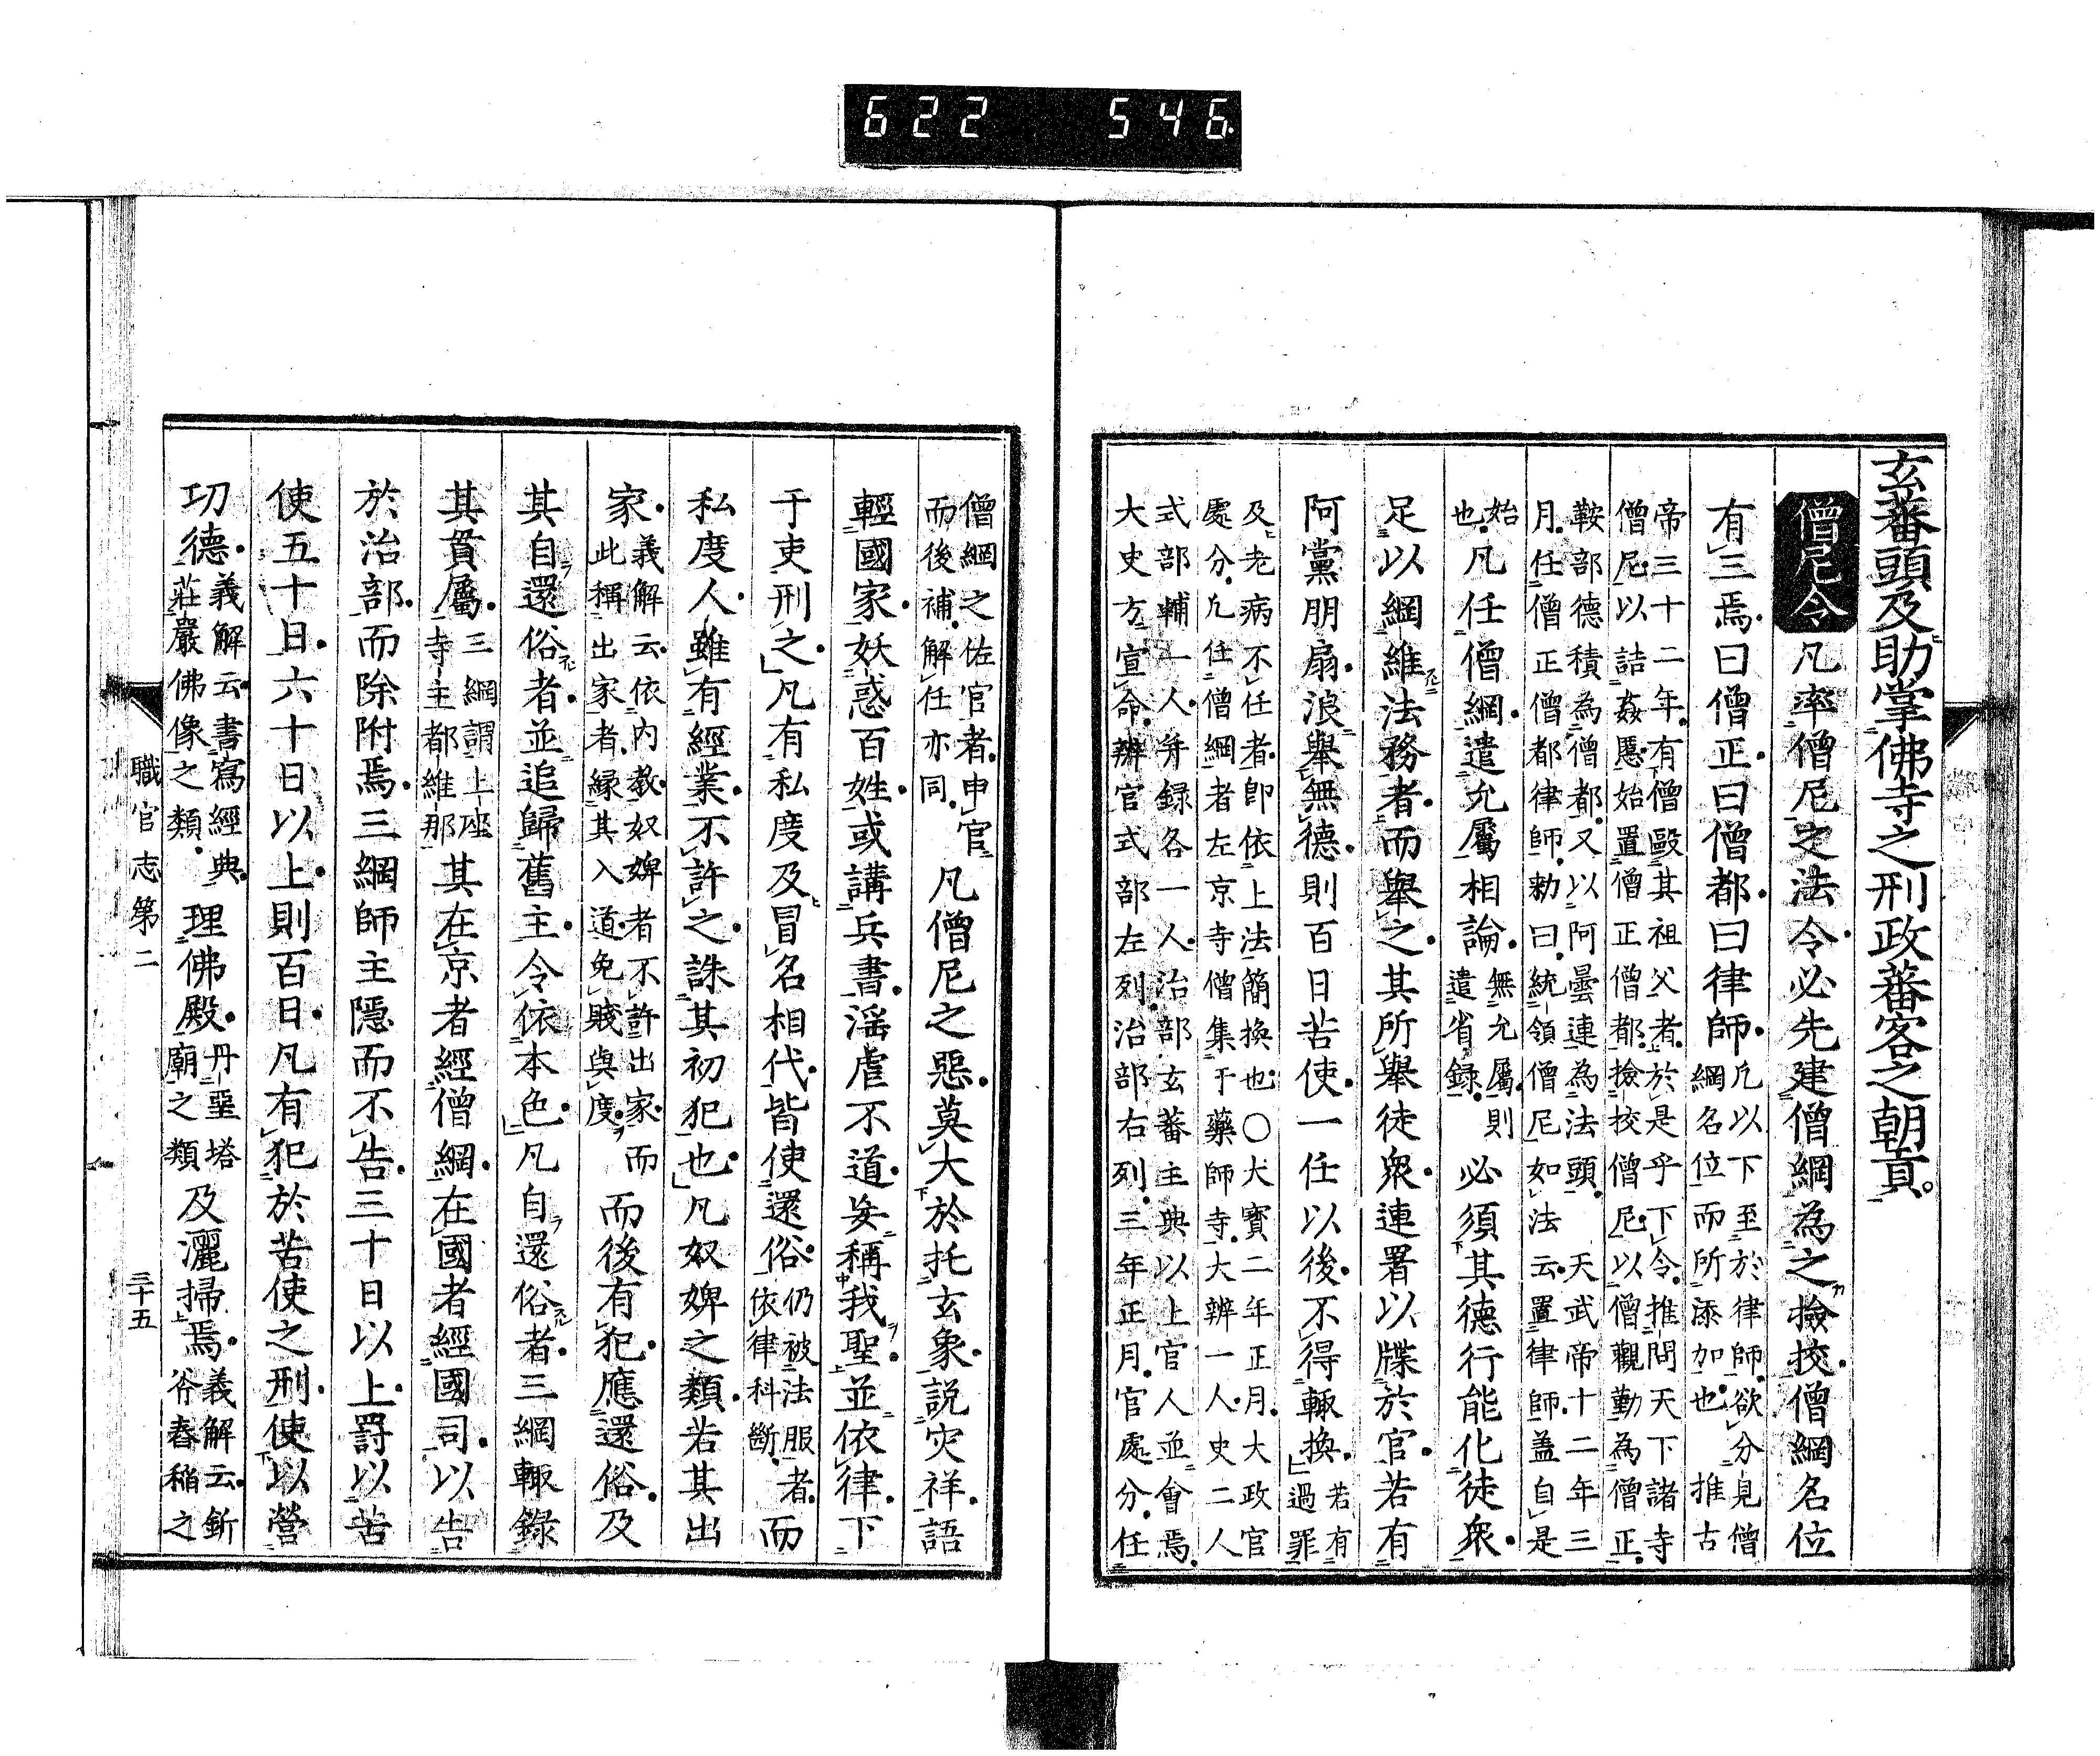 622 546.
玄蕃頭及助掌佛寺之刑政蕃客之朝貢。
僧尼令 凡率僧尼之法令必先建僧綱為之撿挍僧綱名位
有三焉曰僧正曰僧都曰律師凡以下至於律師欲分見僧
綱名位而所添加也 推古
帝三十二年有僧毆其祖父者於是乎下令推問天下諸寺
僧尼以詰姦慝始置僧正僧都撿挍僧尼以僧觀勤為僧正
鞍部德積為僧都又以阿曇連為法頭 天武帝十二年三
月任僧正僧都律師勅曰統領僧尼如法云置律師蓋自是
始
也凡任僧綱遣允屬相論無允屬則
遣省録必須其德行能化徒衆
足以綱維法務者而舉之其所舉徒衆連署以牒於官若有
阿黨朋扇浪舉無德則百日苦使一任以後不得輙換若有
過罪
及老病不任者即依上法簡換也〇大寶二年正月大政官
處分凡任僧綱者左京寺僧集于藥師寺大辨一人史二人
式部輔一人弁録各一人治部玄蕃主典以上官人並會焉
大史方宣命辨官式部左列治部右列三年正月官處分任
僧綱之佐官者申官
而後補解任亦同 凡僧尼之惡莫大於托玄象説灾祥語
輕國家妖惑百姓或講兵書滛虐不道妄稱我聖並依律下
于吏刑之凡有私度及冒名相代皆使還俗仍被法服者
依律科斷而
私度人雖有經業不許之誅其初犯也凡奴婢之類若其出
家義解云依内教奴婢者不許出家而
此稱出家者縁其入道免賤與度而後有犯應還俗及
其自還俗者並追歸舊主令依本色凡自還俗者三綱輙録
其貫屬三綱謂上座
寺主都維那其在京者經僧綱在國者經國司以告
於治部而除附焉三綱師主隱而不告三十日以上罸以苦
使五十日六十日以上則百日凡有犯於苦使之刑使以營
功德義解云書寫經典
莊嚴佛像之類理佛殿丹堊塔
廟之類及灑掃焉義解云斫
谷舂稲之
職官志第二
三十五